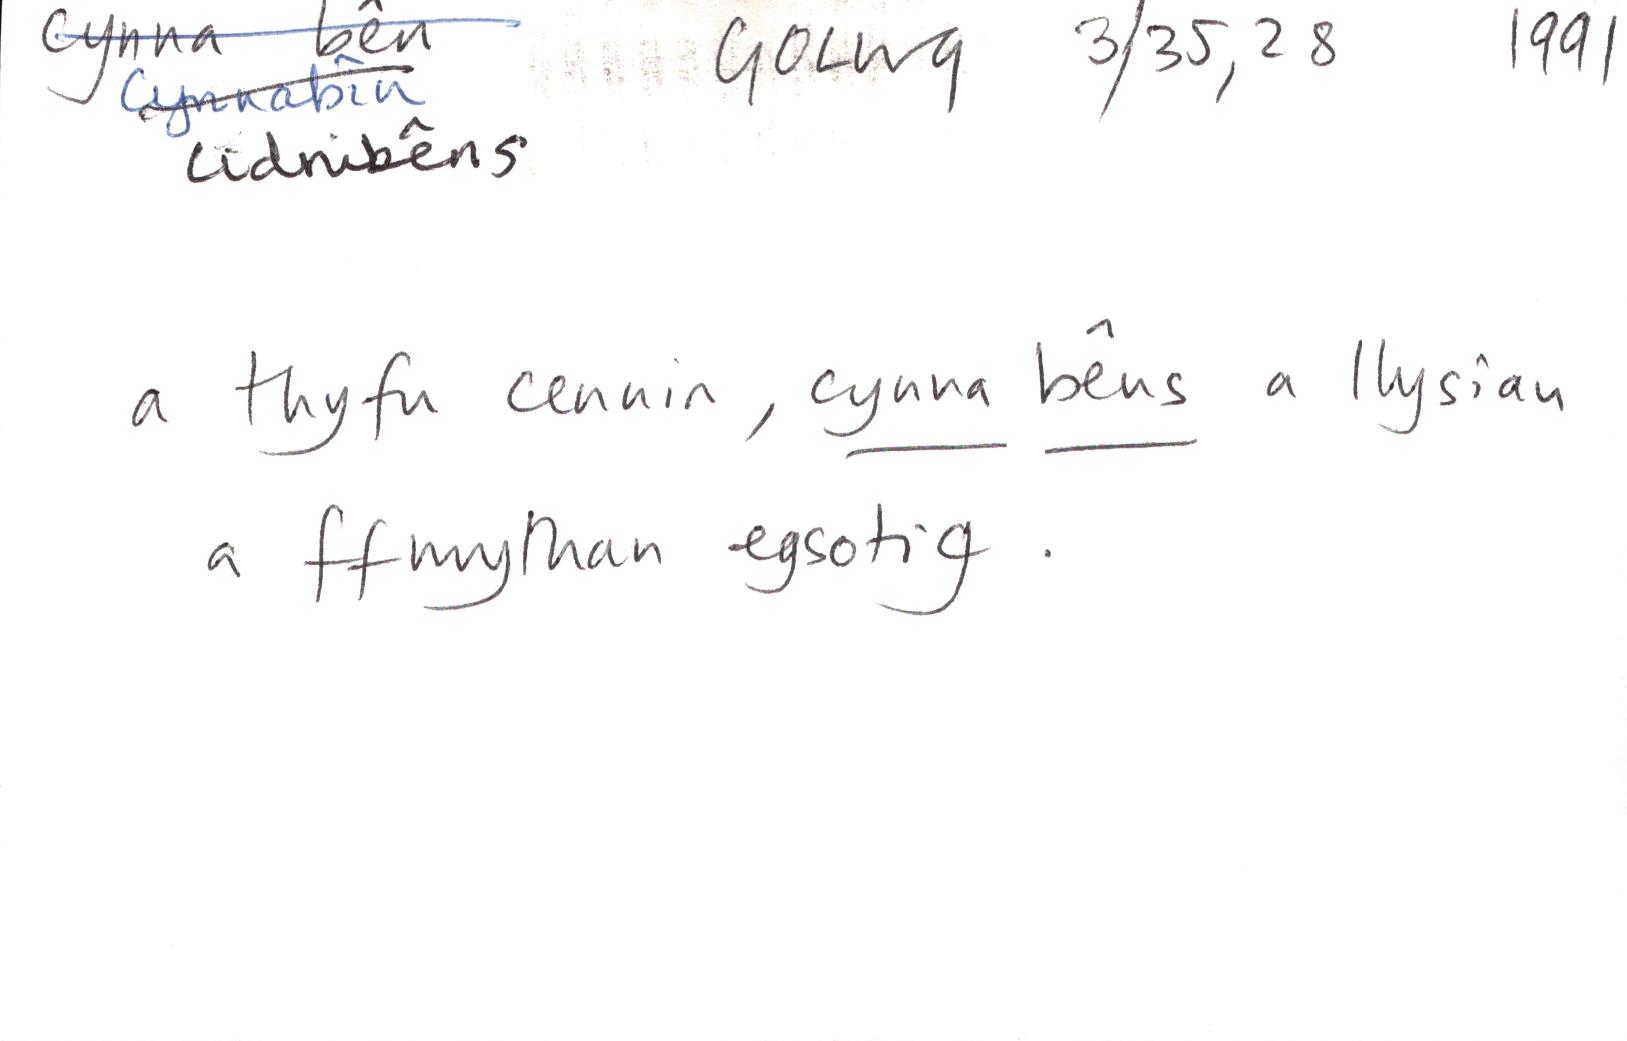 cynna bên GOLWG 3/35,28 1991
Cynnabîn
cidnibêns
a thyfu cennin, cynna bêns a llysiau
a ffrwythau egsotig.